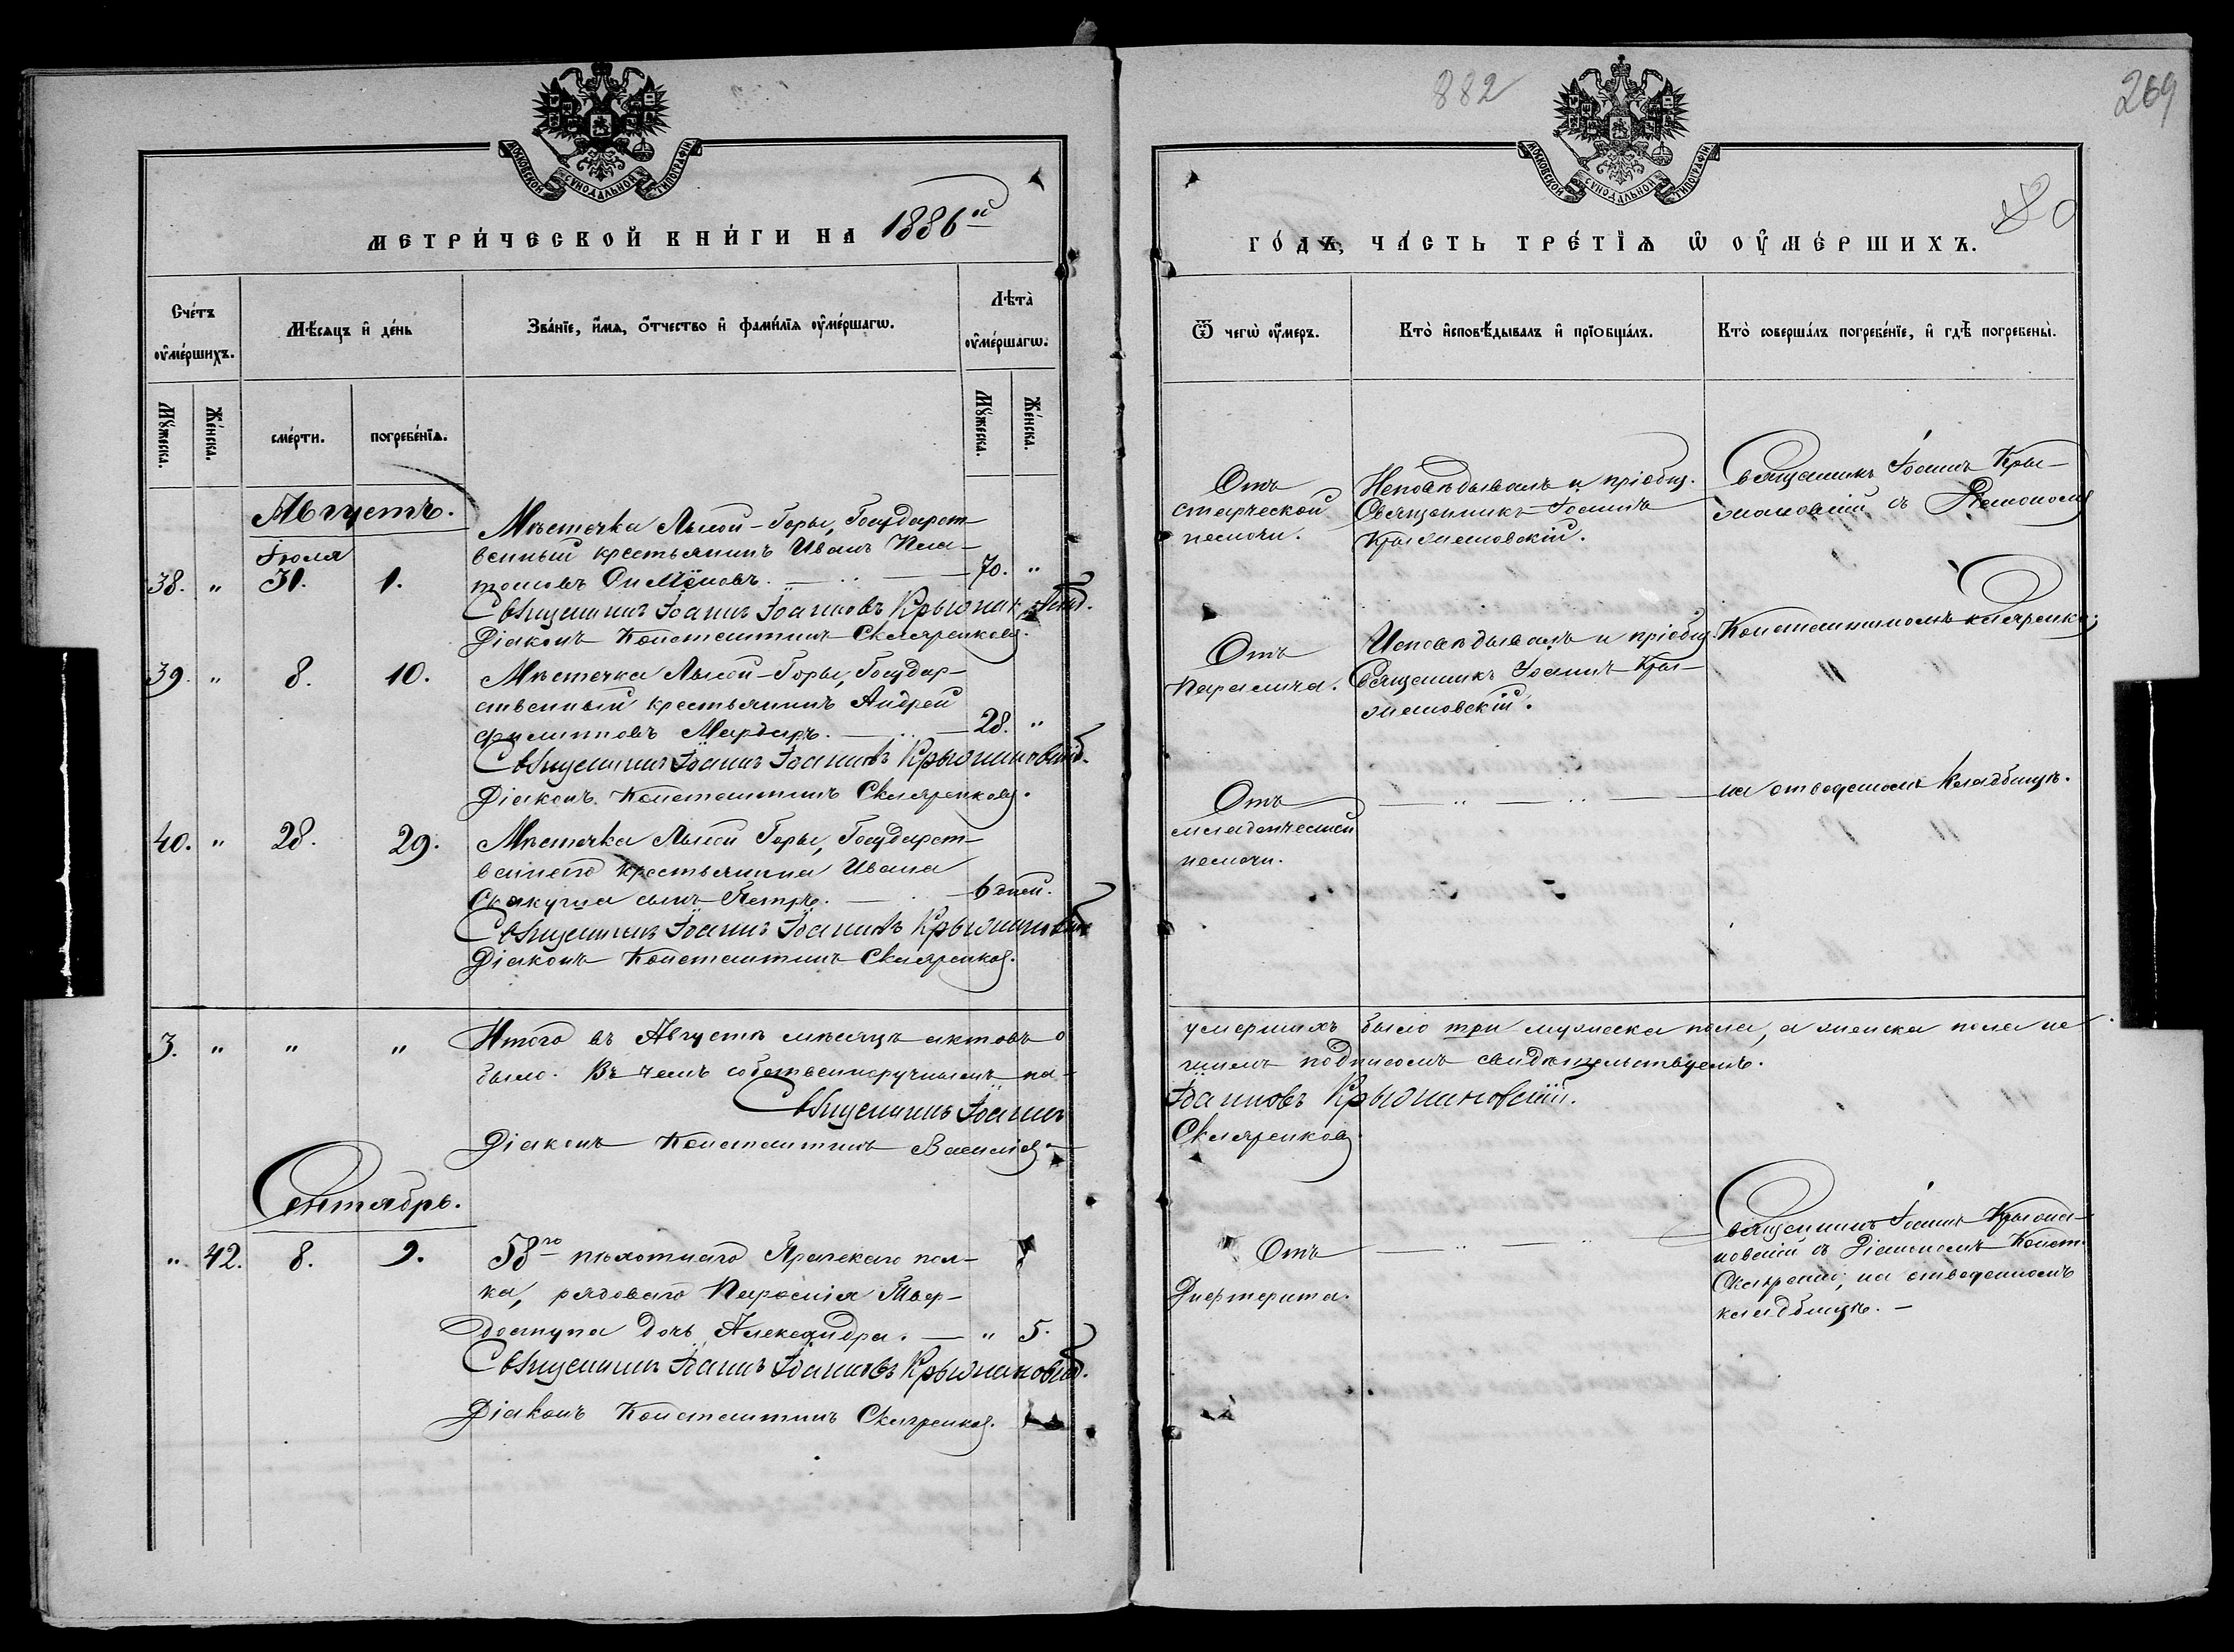 882
269
МОСКОВСКОЙ СѴНОДАЛЬНОЙ ТИПОГРАФІИ
МОСКОВСКОЙ СѴНОДАЛЬНОЙ ТИПОГРАФІИ
МЕТРИ́ЧЕСКОЙ КНИ́ГИ НА 1886й
ГО́ДЪ, ЧА́СТЬ ТРЕ́ТІѦ Ѡ ОУ҆МЕ́РШИХЪ.
Сче́тъ оу҆ме́ршихъ.
Мѣ́сяцъ и҆ де́нь
Зва́нїе, и҆́мя, ѻ҆́тчество и҆ фами́лїя оу҆ме́ршагѡ.
Лѣта̀ оу҆ме́ршагѡ.
Ѿ чегѡ̀ оу҆́меръ.
Кто̀ и҆сповѣ́дывалъ и҆ прїѡбща́лъ.
Кто̀ соверша́лъ погребе́нїе, и҆ гдѣ̀ погребены̀.
Мꙋ́жеска.
Же́нска.
сме́рти.
погребе́нїѧ.
Мꙋ́жеска.
Же́нска.
Августъ.
Іюля
38. " 31. 1.
Мѣстечка Лысой-Горы, Государст-
венный крестьянинъ Иванъ Пла-
тоновъ Симёновъ. 70. "
Священникъ Іоаннъ Іоанновъ Крыжановскій.
Діаконъ Константинъ Скляренковъ.
Отъ
старческой
немочи.
Исповѣдывалъ и пріобщ.
Священникъ Іоаннъ
Крыжановскій.
Священникъ Іоаннъ Кры-
жановскій съ Діакономъ
39. " 8. 10.
Мѣстечка Лысой-Горы, Государ-
ственный крестьянинъ Андрей
Филипповъ Мардарь. 28. "
Священникъ Іоаннъ Іоанновъ Крыжановскій.
Діаконъ Константинъ Скляренковъ.
Отъ
Паралича.
Исповѣдывалъ и пріобщ.
Священникъ Іоаннъ Кры-
жановскій.
Константиномъ Скляренко;
40. " 28. 29.
Мѣстечка Лысой Горы, Государст-
веннаго крестьянина Ивана
сынъ Петръ. 6 дней.
Священникъ Іоаннъ Іоанновъ Крыжановскій
Діаконъ Константинъ Скляренковъ.
Отъ
младенческой
немочи.
на отведеномъ Кладбищѣ.
3. " " "
Итого въ Августѣ мѣсяцѣ актовъ о
умершихъ было три мужеска пола, а женска пола не
было. Въ чемъ собственноручнымъ на-
шимъ подписомъ свидѣтельствуемъ.
Священникъ Іоаннъ
Іоанновъ Крыжановскій.
Діаконъ Константинъ Василіевъ
Скляренковъ
Сентябрь.
" 42. 8. 9.
58го пѣхотнаго Прагскаго пол-
ка, рядоваго
дочь Александра. " 5.
Священникъ Іоаннъ Іоанновъ Крыжановскій.
Діаконъ Константинъ Скляренковъ.
Отъ
Дифтерита.
Священникъ Іоаннъ Крыжа-
новскій съ Діакономъ Конст.
Скляренко, на отведенномъ
кладбищѣ.